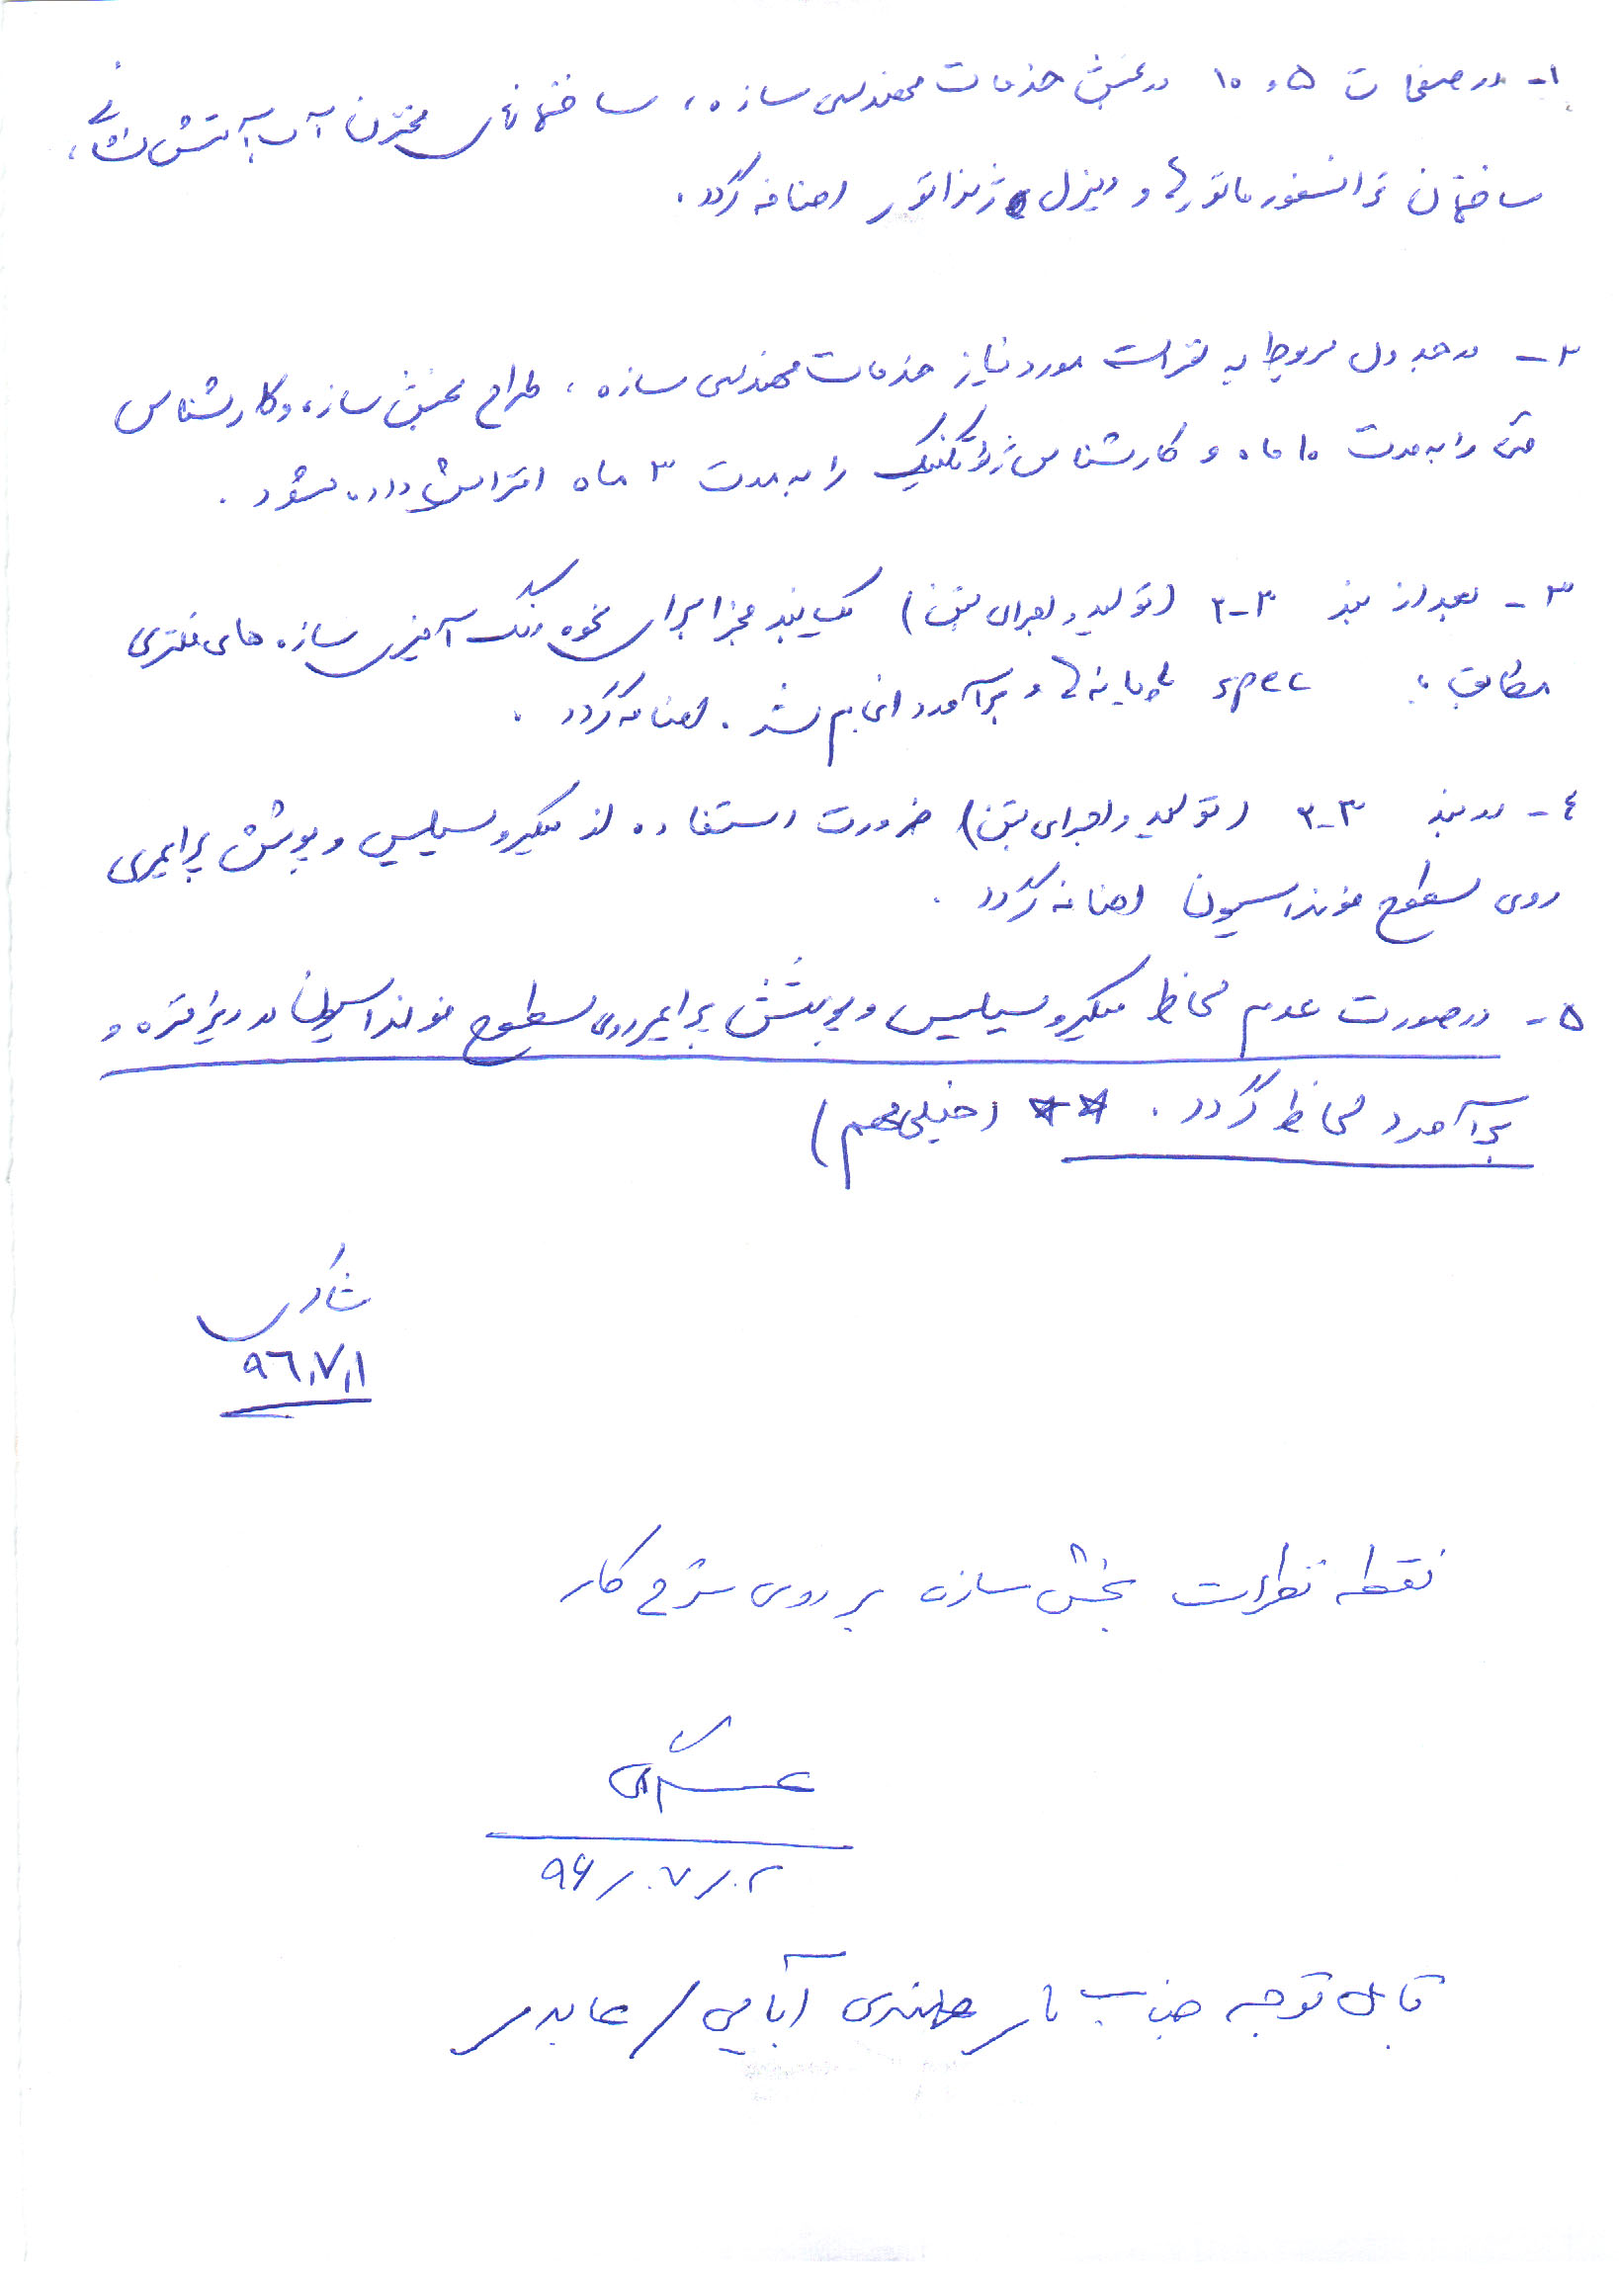 ۱- در صفحات ۵ و ۱۰ در بخش خدمات مهندسی سازه، ساختمانهای مخزن آب آتش نشانی،
ساختمان ترانسفورماتورها و دیزل ژنراتور اضافه گردد.
۲- در جدول مربوط به نفرات مورد نیاز خدمات مهندسی سازه، طراح بخش سازه و کارشناس
متره را به مدت ۱۰ ماه و کارشناس ژئوتکنیک را به مدت ۳ ماه افزایش داده شود.
۳- بعد از بند ۳-۲ (تولید و اجرای بتن) یک بند مجزا برای نحوه رنگ آمیزی سازه های فلزی
مطابق با spec پایانه ها و برآورد انجام شده اضافه گردد.
٤- در بند ۳-۲ (تولید و اجرای بتن) ضرورت استفاده از میکروسیلیس و پوشش پرایمری
روی سطوح فونداسیون اضافه گردد.
۵- در صورت عدم لحاظ میکروسیلیس و پوشش پرایمر روی سطوح فونداسیون در ریز متره و
برآورد لحاظ گردد. ** (خیلی مهم)
شاکری
۹٦,۷,۱
نقطه نظرات بخش سازه بر روی شرح کار
عسگری
۹۶/۰۷/۰۲
قابل توجه جناب مهندس آبایی / عابدی